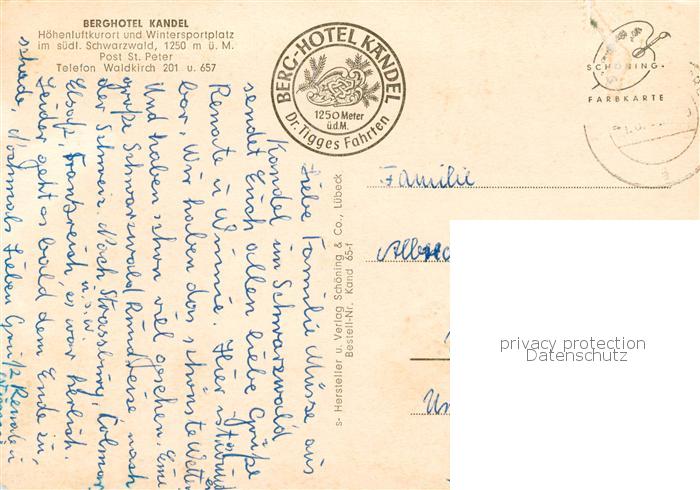 BERGHOTEL KANDEL
Höhenluftkurort und Wintersportplatz
im südl. Schwarzwald, 1250 m ü. M.
Post St. Peter
Telefon Waldkirch 201 u. 657
BERG-HOTEL KANDEL
1250 Meter
ü.d.M.
Dr. Tigges Fahrten
SCHÖNING-
FARBKARTE
Liebe Familie aus
Kandel im Schwarzwald
sendet Euch allen liebe Grüße
Renate u Winnie. Hier ist
bar. Wir haben das schönste Wetter
Und haben schon viel gesehen. Eine
große Schwarzwald Rundreise nach
der Schweiz. Nach Strassburg, Colmar
u.s.w
Elsaß, Frankreich, es war herlich.
Leider geht es bald dem Ende zu,
schade. Nochmals lieben Gruß Renate u
s- Hersteller u. Verlag Schöning & Co., Lübeck
Bestell-Nr. Kand 65-f
Familie
privacy protection
Datenschutz